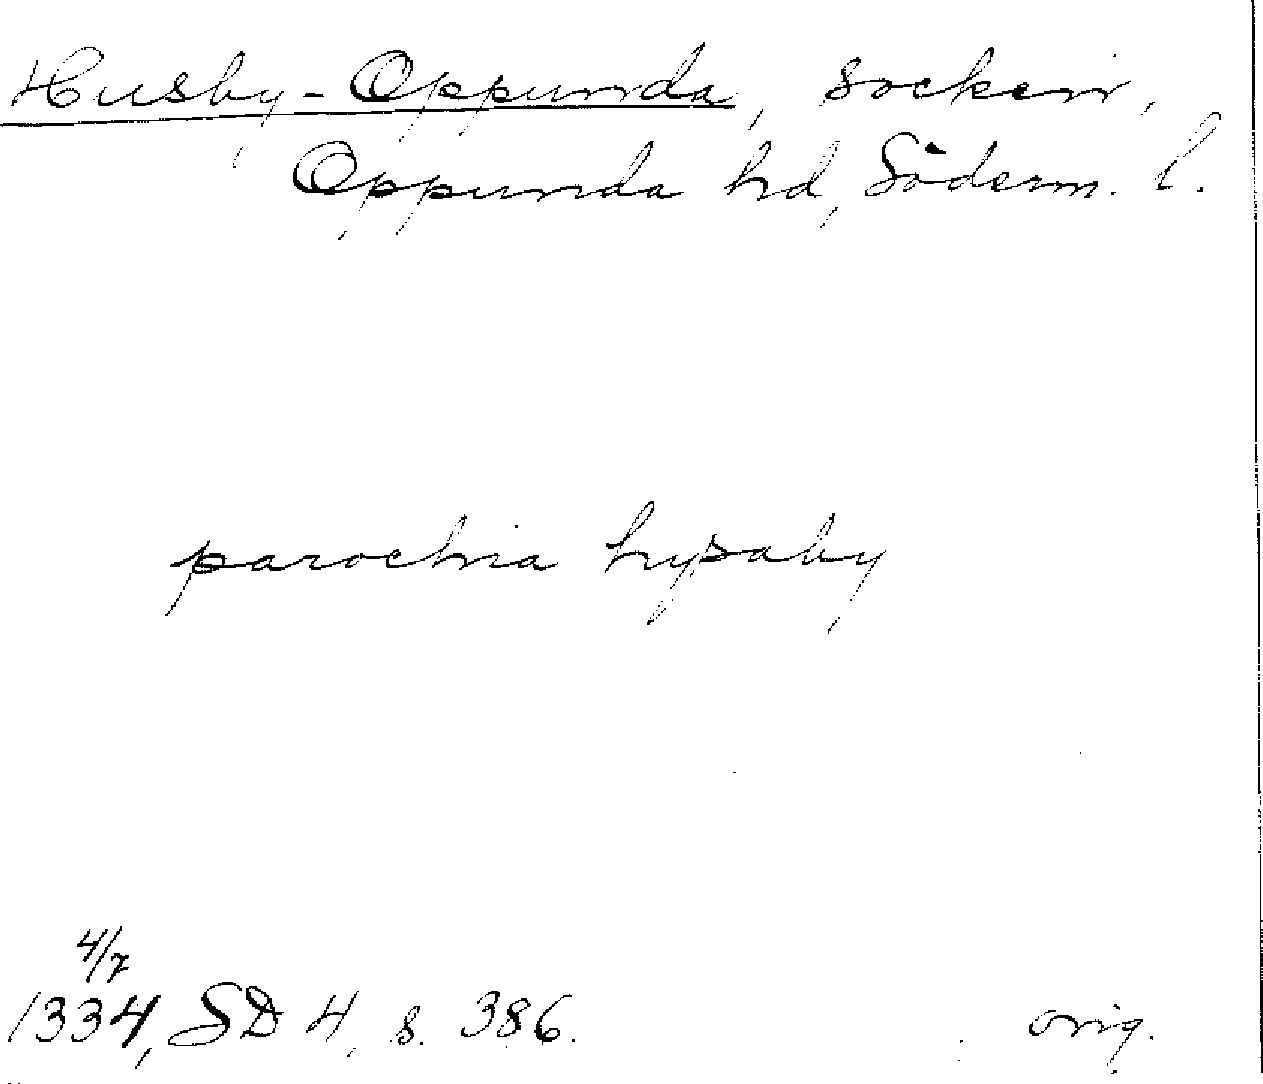 Husby-Oppunda, socken,
Oppunda hd, Söderm. l.
parochia hysaby
4/7
1334, SD 4, s. 386.
orig.